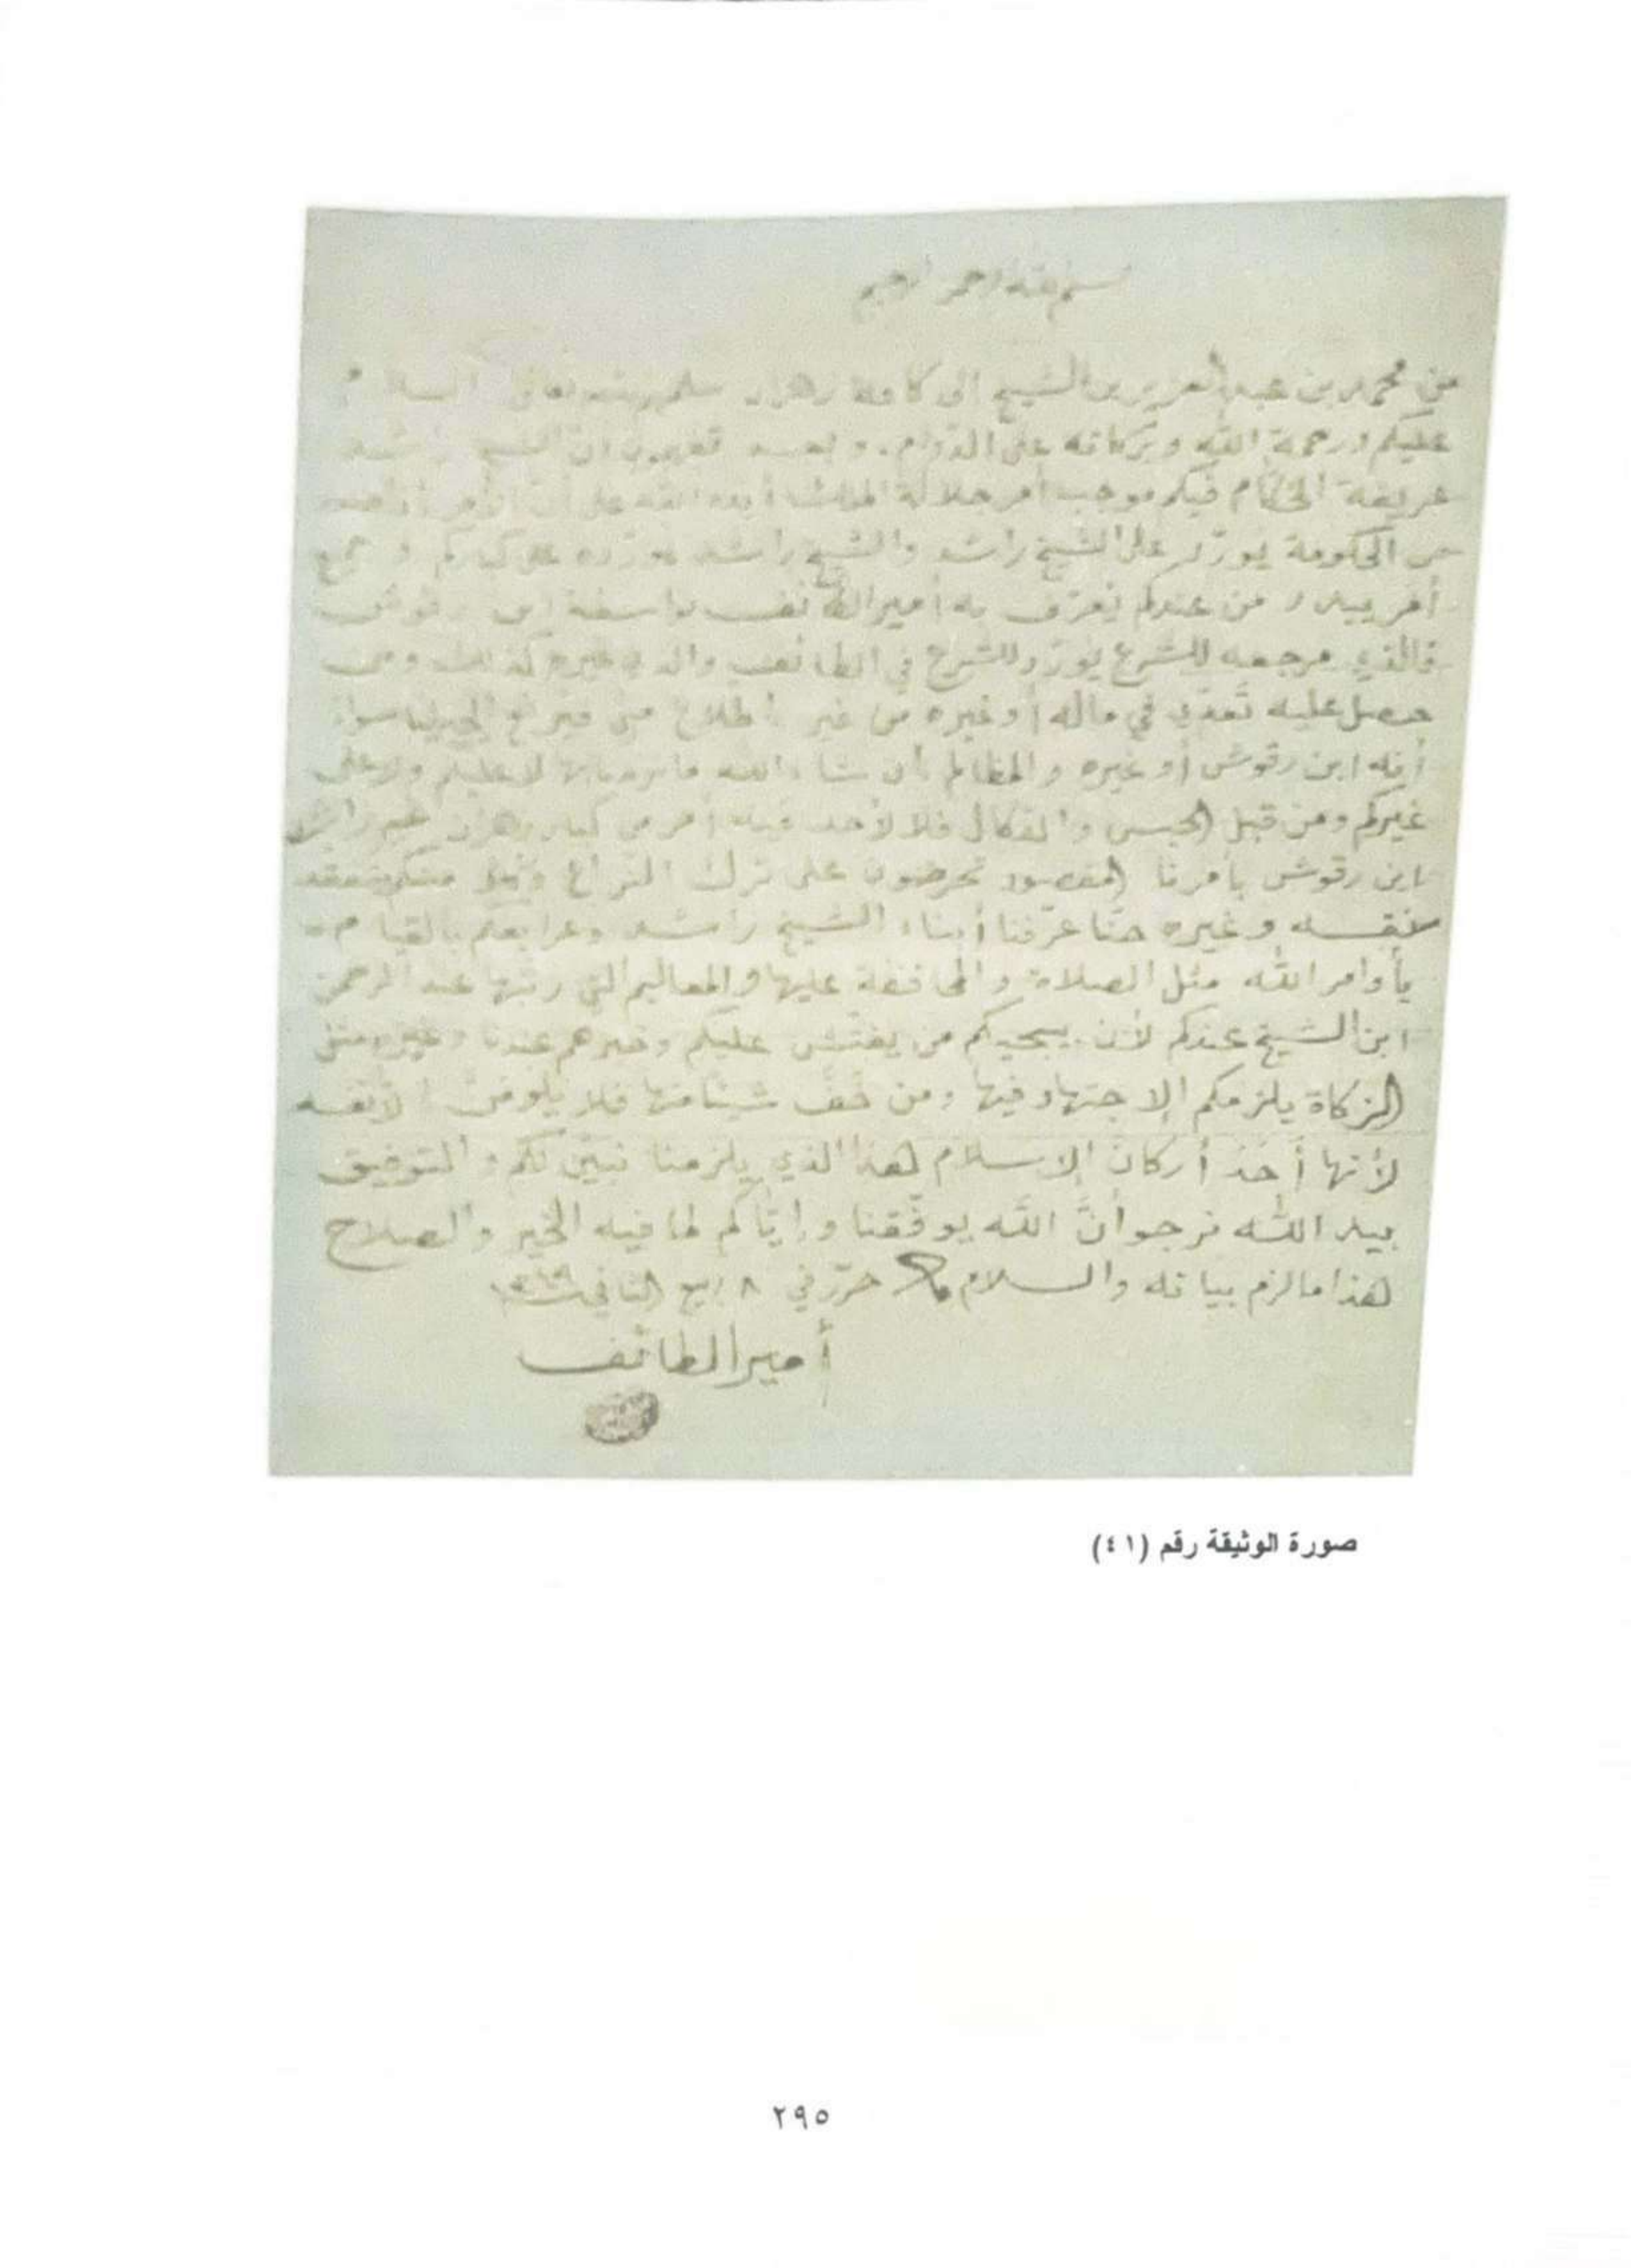 بسم الله الرحمن الرحيم
من محمد بن عبد العزيز بن الشيخ الى كافة زهران سلمهم الله تعالى السلام
عليكم ورحمة الله وبركاته على الدوام. وبعد تفهمون ان الشيخ راشد
عريفة الحكام فيكم موجب أمر جلالة الملك أيده الله على أن الأمر
من الحكومة يورّد على الشيخ راشد والشيخ راشد يورّده على كباركم وجميع
أمر من عندكم يُعرّف به أمير الطائف بواسطة ابن رقوش
فالذي مرجعه للشرع يورّد للشرع في الطائف والذي غيره كذلك ومن
حصل عليه تعدّي في ماله أو غيره من غير اطلاع سواء
أنه ابن رقوش أو غيره والمظالم ان شاء الله ما لا عليكم ولا على
غيركم ومن قبل الحبس والفكاك فلا لأحد فيه أمر من كبار زهران غير راشد
ابن رقوش بأمرنا المقصود تحرصون على ترك النزاع منكم
نفسه وغيره حنّا عرّفنا أبناء الشيخ راشد بالقيام
بأوامر الله مثل الصلاة والمحافظة عليها والمعاليم التي رتّبها عبد الرحمن
ابن الشيخ عندكم لأن يجيكم من يفتّش عليكم عندنا وغيره مثل
الزكاة يلزمكم الاجتهاد فيها ومن خفّ شيئًا منها فلا يلومنّ الا نفسه
لأنها أحد أركان الاسلام هذا الذي يلزمنا نبيّن لكم والتوفيق
بيد الله نرجوا أنّ الله يوفّقنا وإيّاكم لما فيه الخير والصلاح
هذا ما لزم بيانه والسلام حرّر في ٨ ربيع الثاني
أمير الطائف
صورة الوثيقة رقم (٤١)
٢٩٥